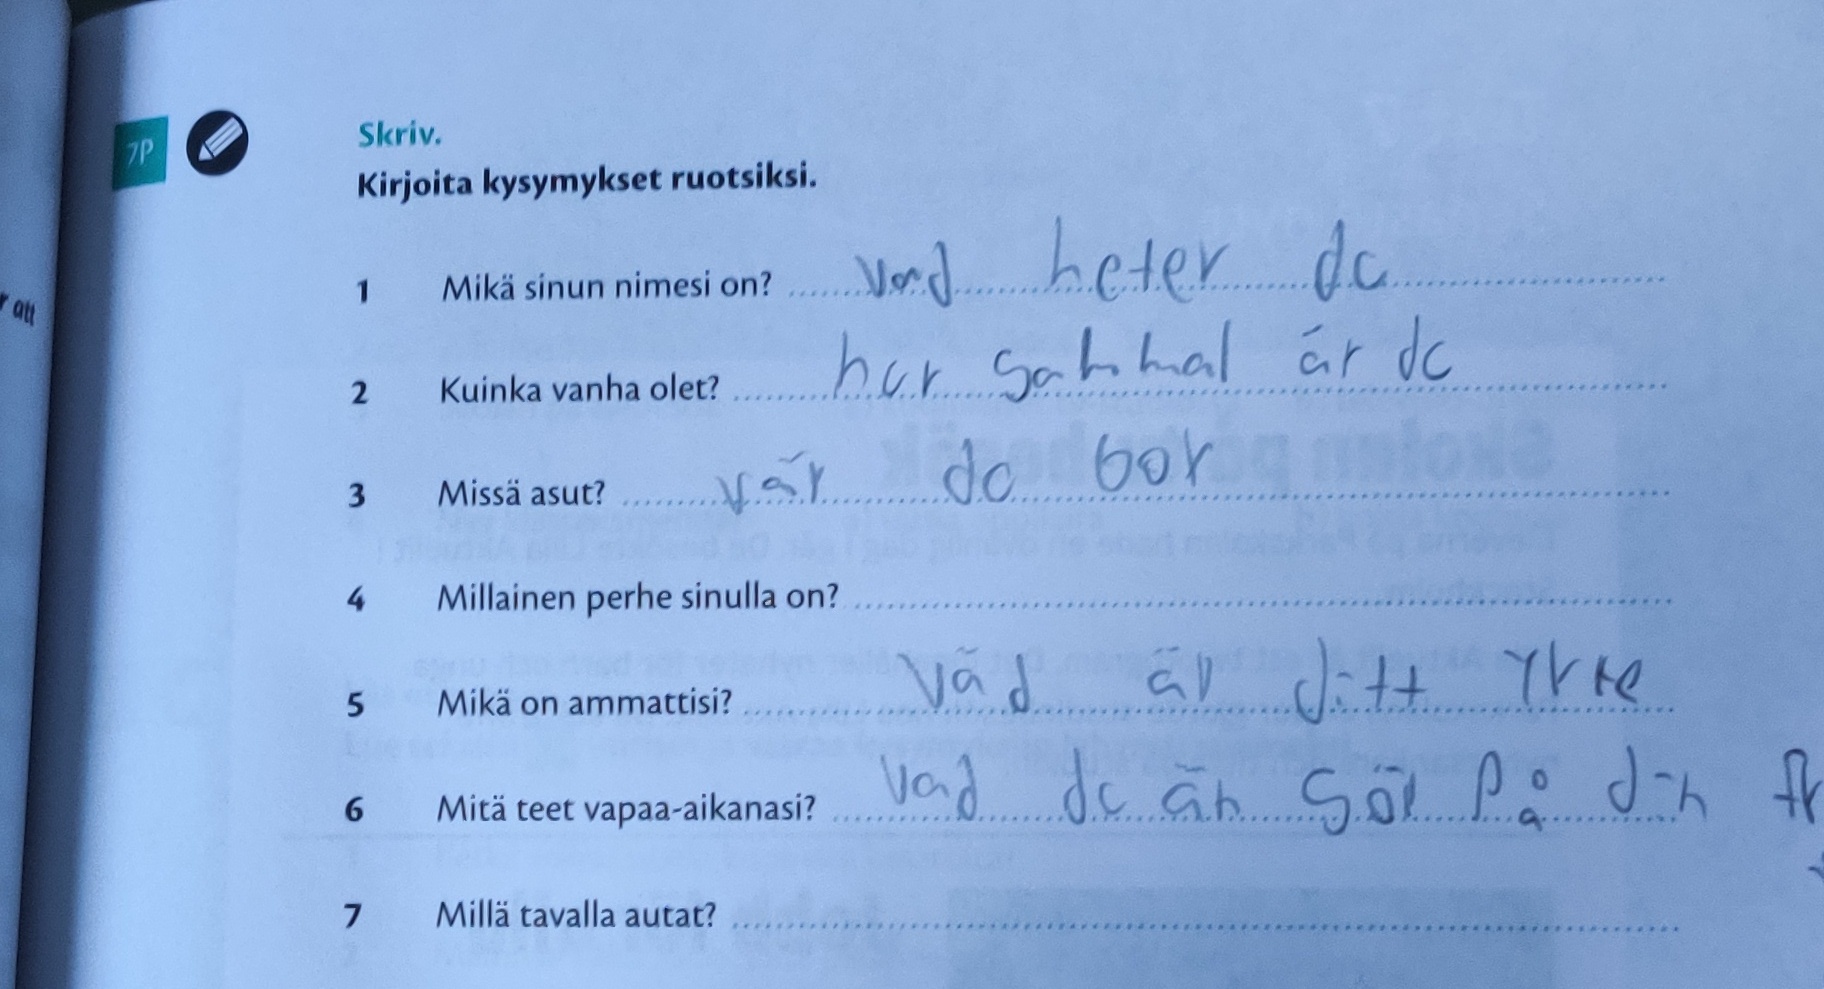 r att
7P
Skriv.
Kirjoita kysymykset ruotsiksi.
1 Mikä sinun nimesi on? Vad heter dc
2 Kuinka vanha olet? hur Sammal är dc
3 Missä asut? vär dc bor
4 Millainen perhe sinulla on?
5 Mikä on ammattisi? väd är ditt Yrke
6 Mitä teet vapaa-aikanasi? Vad dc än Sör på din fr
7 Millä tavalla autat?